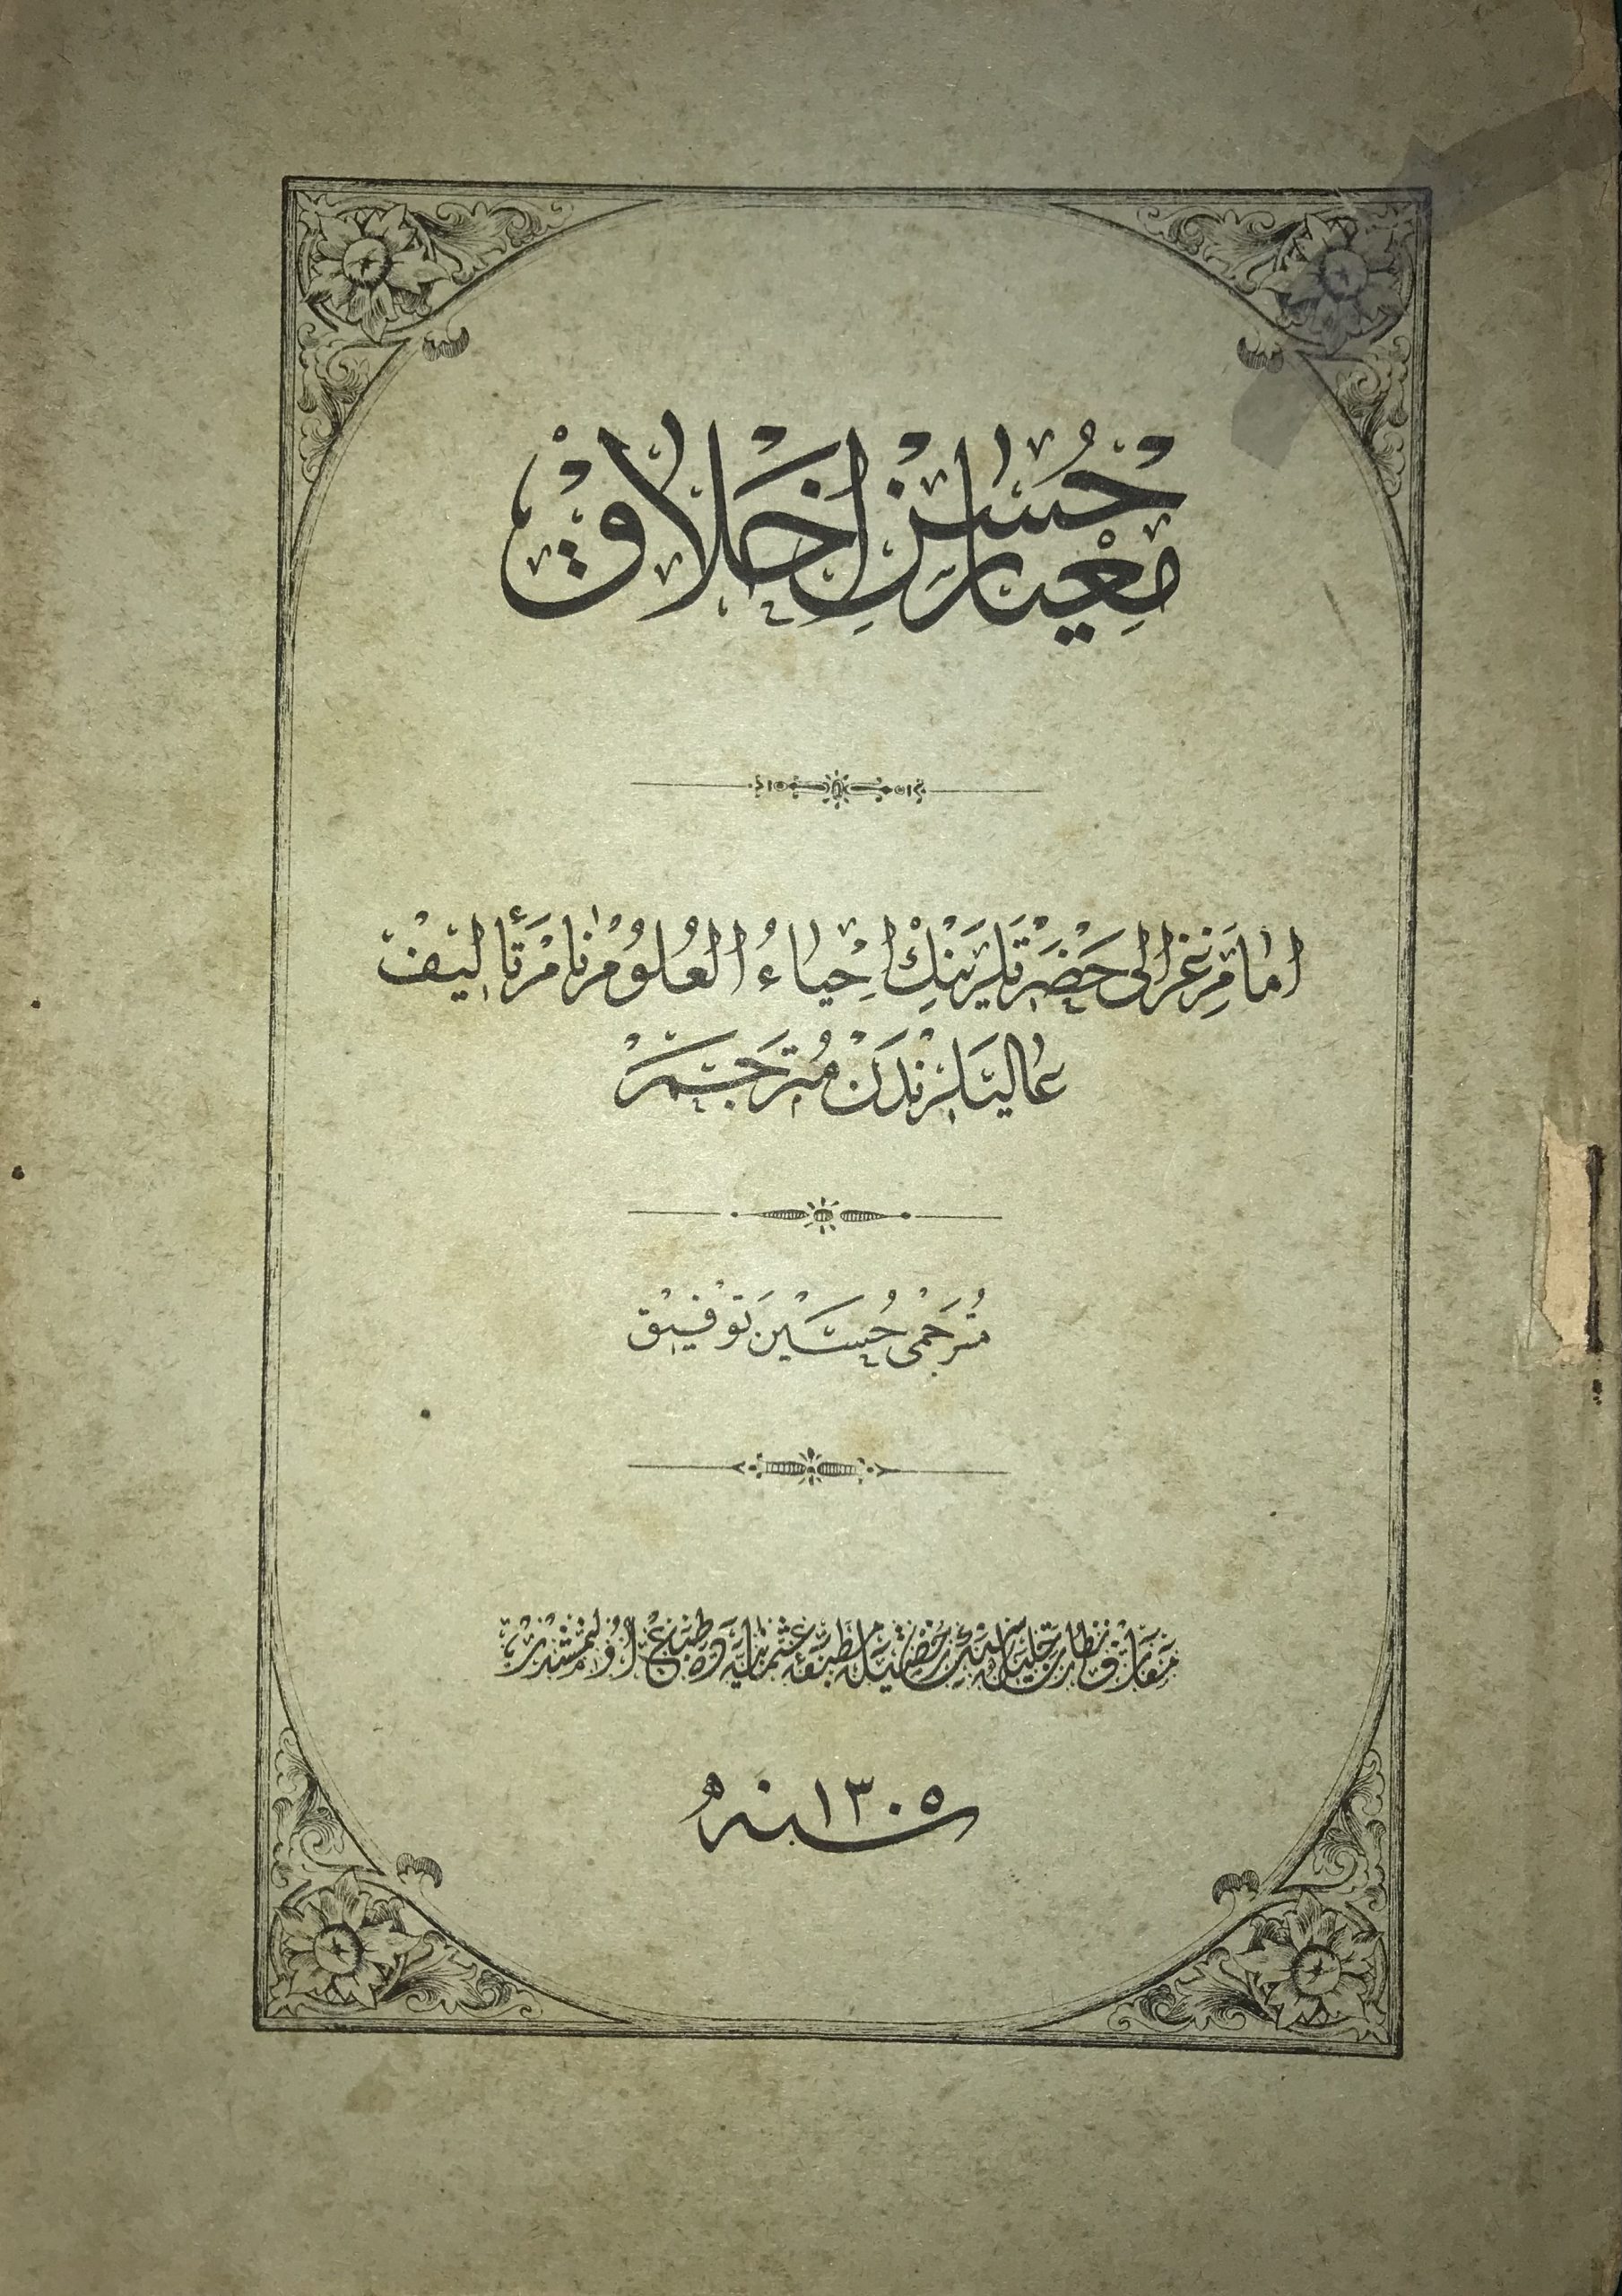 معیار حسن اخلاق
امام غزالی حضرتلرینك احیاء العلوم نام تألیف
عالیلرندن مترجم
مترجمی حسین توفیق
معارف نظارت جلیله سنك رخصتیله مطبعهٔ عثمانیه ده طبع اولنمشدر
سنه ١٣٠٥